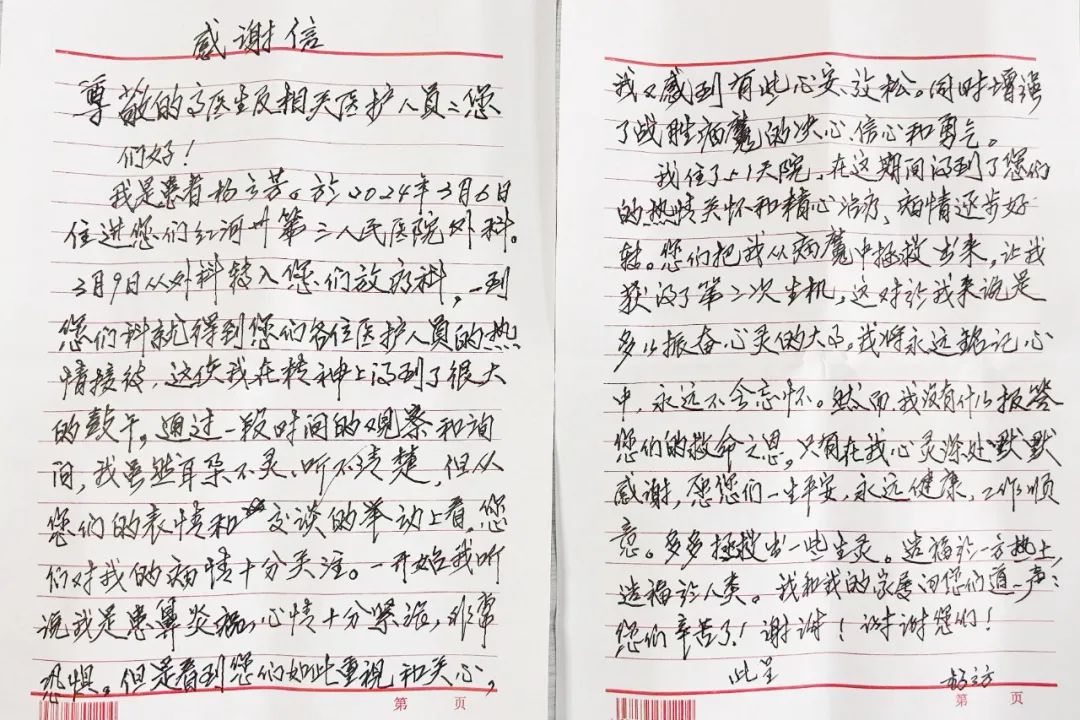 感谢信
尊敬的高医生及相关医护人员:您
们好!
我是患者杨立芳。於2024年3月6日
住进您们红河州第三人民医院外科。
3月9日从外科转入您们放疗科,一到
您们科就得到您们各位医护人员的热
情接待,这使我在精神上得到了很大
的鼓午,通过一段时间的观察和询
问,我虽然耳朵不灵、听不清楚,但从
您们的表情和交谈的举动上看,您
们对我的病情十分关注。一开始我听
说我是患鼻炎病,心情十分紧张,非常
恐惧。但是看到您们如此重视和关心,
第 页
我又感到有些心安、放松。同时增强
了战胜病魔的决心、信心和勇气。
我住了51天院,在这期间得到了您们
的热情关怀和精心治疗、病情逐步好
转。您们把我从病魔中拯救出来,让我
获得了第二次生机,这对於我来说是
多么振奋心灵的大事。我将永远铭记心
中,永远不会忘怀。然而,我没有什么报答
您们的救命之恩,只有在我心灵深处默默
感谢,愿您们一生平安,永远健康,工作顺
意。多多拯救出一些生灵。造福於一方热土,
造福於人类。我和我的家属向您们道一声:
您们辛苦了!谢谢!谢谢您们!
此呈
杨立芳
第 页